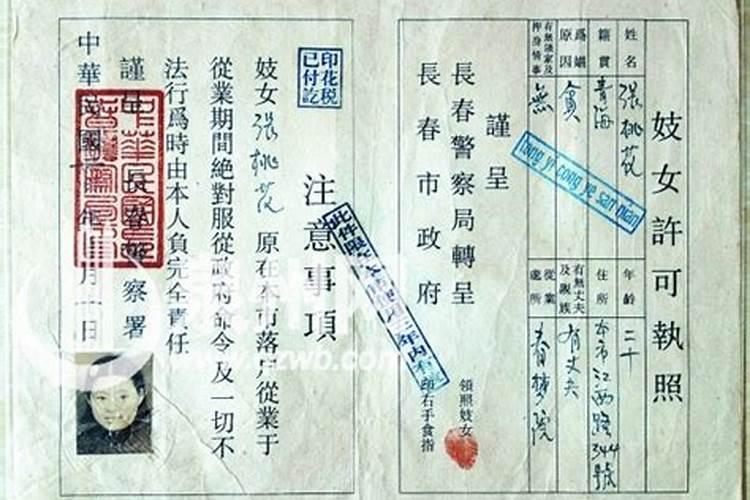 妓女許可執照
姓名 張桃花 年齡 二十
籍貫 青海 住所 本市江西路344號
爲娼原因 貧 有無丈夫及親族 有丈夫
有無領家及押身情事 無 從業處所 春夢院
tong yi cong ye san nian
謹呈
長春警察局轉呈
長春市政府
領照妓女
印右手食指
此件限
年内有效
注意事項
印花税
已付訖
妓女張桃花 原在本市落戶從業于
從業期間絕對服從政府命令及一切不
法行爲時由本人負完全責任
謹呈 長春警察署
中華民國 年 月一日
www.zwb.com